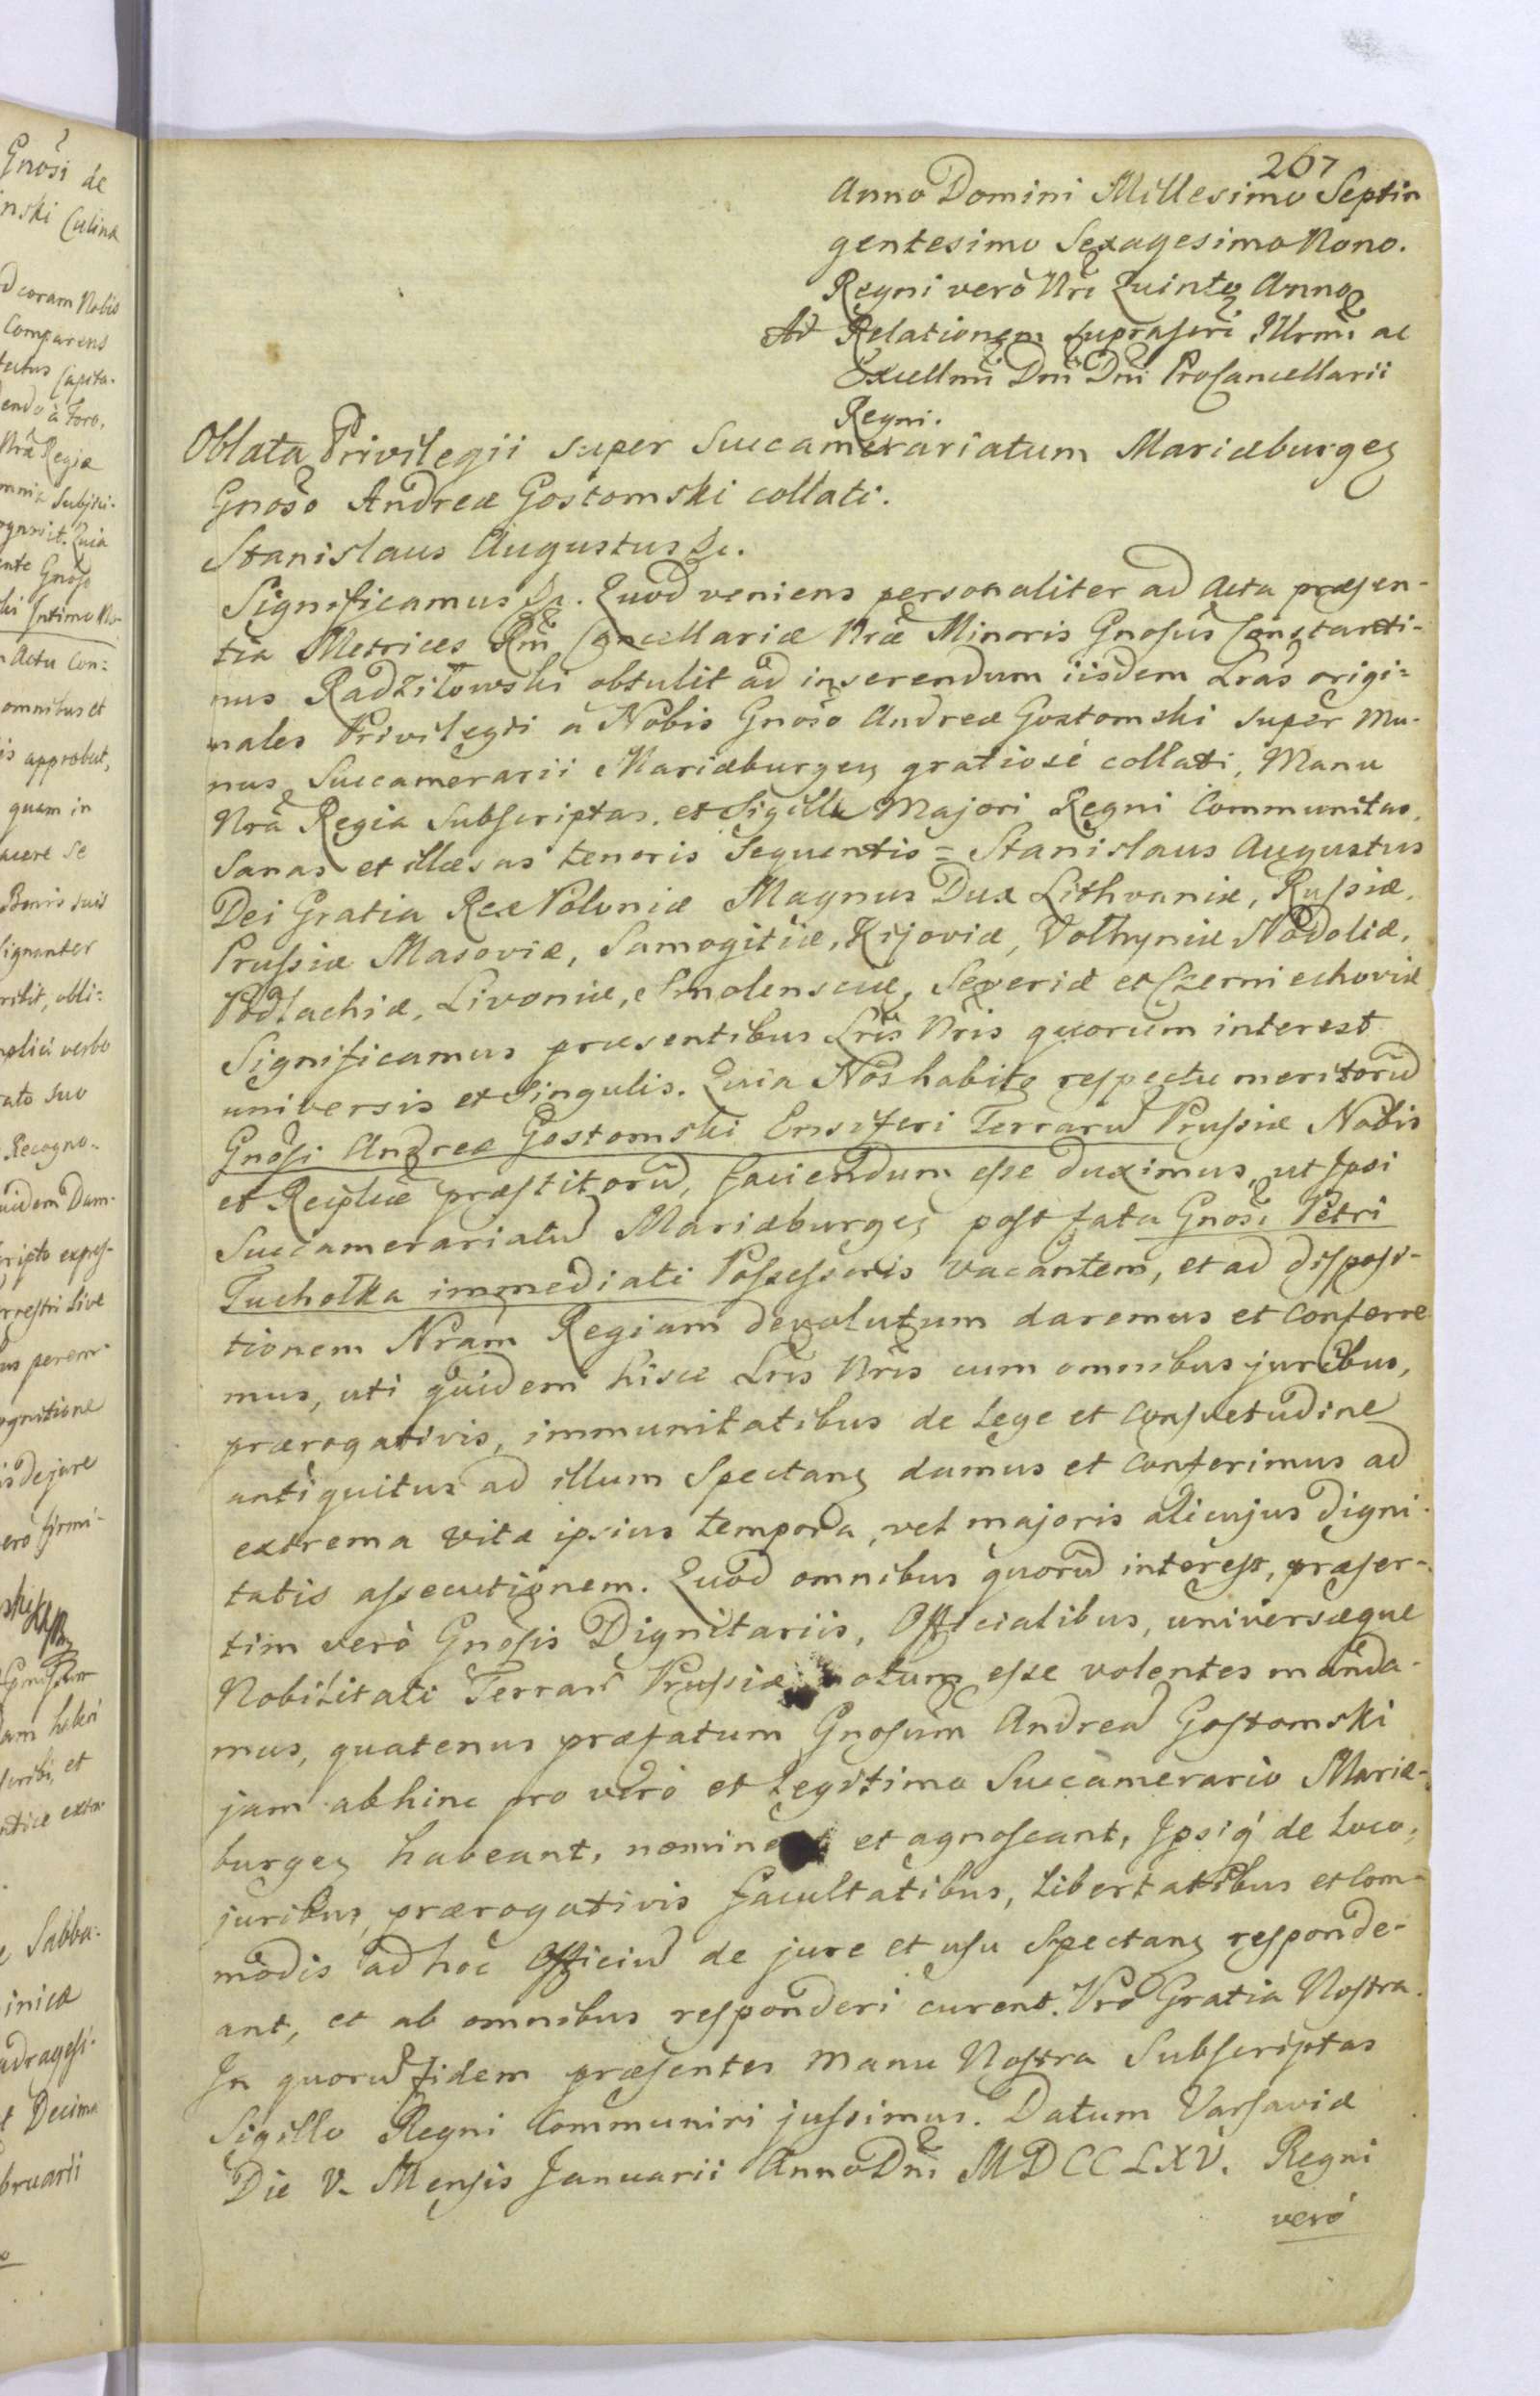 267
Anno Domini Millesimo Septin
gentesimo Sexagesimo Nono.
Regni verò Nri Quinto Anno
Ad Relationem suprascri Illrmi ac
Excellmi Dni Dni ProCancellarii
Regni.
Oblata Privilegii super Succamerariatum Mariæburgen
Gnoso Andreæ Gostomski collati.
Stanislaus Augustus &c.
Significamus &c. Quod veniens personaliter ad Acta præsen-
tia Metrices Rni Cancellariæ Nræ Minoris Gnosus Constanti-
nus Radziłowski obtulit ad inserendum iisdem Lras origi=
nales Privilegii à Nobis Gnoso Andreæ Gostomski super Mu-
nus Succamerarii Mariæburgen gratiosè collati, Manu
Nrâ Regia Subscriptas. et Sigillo Majori Regni Communitas.
Sanas et illæsas tenoris Sequentis = Stanislaus Augustus
Dei Gratia Rex Poloniæ Magnus Dux Lithvaniæ, Russiæ,
Prussiæ Masoviæ, Samogitiæ, Kijoviæ, Volhyniæ Podoliæ,
Podlachiæ, Livoniæ, Smolensciæ, Severiæ et Czerniechoviæ
Significamus præsentibus Lris Nris quorum interest
universis et Singulis. Quia Nos habito respectu meritorũ
Gnosi Andreæ Gostomski Ensiferi Terrarũ Prussiæ Nobis
et Reiplicæ præstitorũ, faciendum esse duximus, ut Ipsi
Succamerariatũ Mariæburgen post fata Gnosi Petri
Tuchołka immediati Possessoris vacantem, et ad disposi-
tionem Nram Regiam devolutum daremus et conferre
mus, uti quidem hisce Lris Nris cum omnibus juribus,
prærogativis, immunitatibus de Lege et Consvetudine
antiquitus ad illum Spectan damus et Conferimus ad
extrema vitæ ipsius tempora, vel majoris alicujus digni-
tatis assecutionem. Quod omnibus quorũ interest, præser-
tim verò Gnosis Dignitariis, Officialibus, universæque
Nobilitati Terrarũ Prussiæ notum esse volentes manda-
mus, quatenus præfatum Gnosum Andreã Gostomski
jam abhinc pro vero et Legitimo Succamerario Mariæ-
burgen habeant, nominent et agnoscant, Ipsiq́ de Loco,
juribus, prærogativis facultatibus, Libertatibus et Com-
modis ad hoc Officiũ de jure et usu Spectan responde-
ant, et ab omnibus responderi curent. Pro Gratia Nostra.
In quorũ fidem præsentes Manu Nostra Subscriptas
Sigillo Regni Communiri jussimus. Datum Varsaviæ
Die V. Mensis Januarii Anno Dni MDCCLXV. Regni
verò